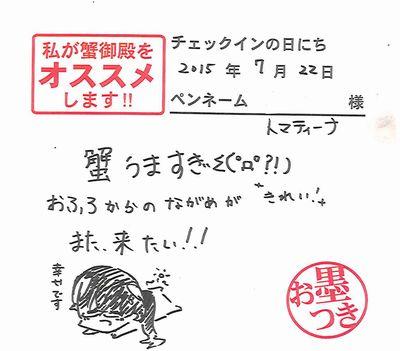 私が蟹御殿を
オススメ
します!!
チェックインの日にち
2015 年 7 月 22 日
ペンネーム 様
トマティーナ
蟹うますぎΣ(°ロ°?!)
おふろからのながめが きれい!
また、来たい!!
幸せです
お墨つき